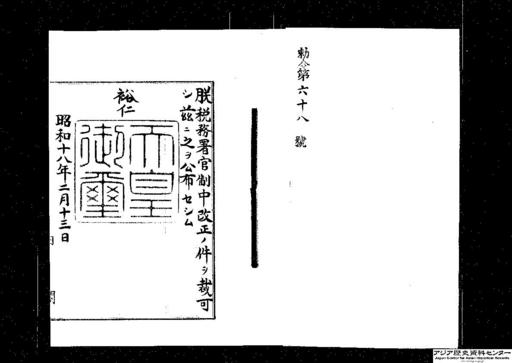 勅令第六十八號
朕税務署官制中改正ノ件ヲ裁可
シ茲ニ之ヲ公布セシム
裕仁
天皇
御璽
昭和十八年二月十三日
内閣
アジア歴史資料センター
Japan Center for Asian Historical Records